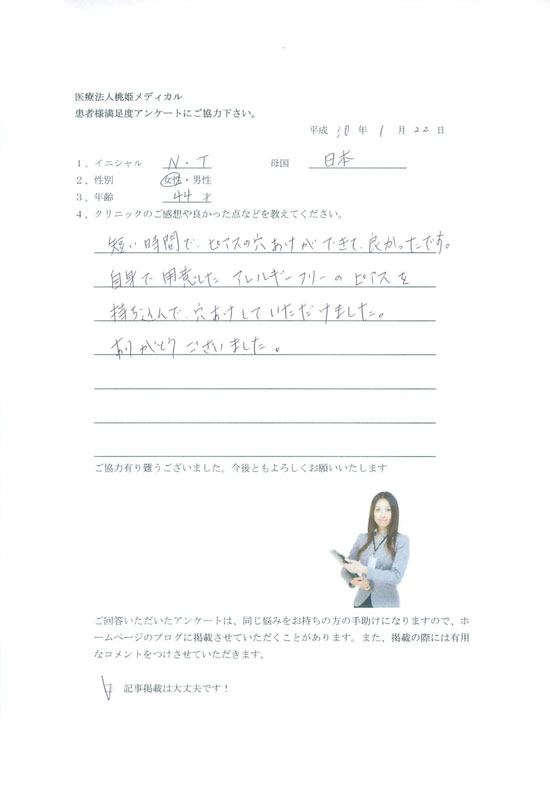 医療法人桃姫メディカル
患者様満足度アンケートにご協力下さい。
平成 30 年 1 月 22 日
1．イニシャル N・T 母国 日本
2．性別 女性・男性
3．年齢 44 才
4．クリニックのご感想や良かった点などを教えてください。
短い時間で、ピアスの穴あけができて、良かったです。
自身で用意したアレルギーフリーのピアスを
持ち込んで、穴あけしていただけました。
ありがとうございました。
ご協力有り難うございました。今後ともよろしくお願いいたします
ご回答いただいたアンケートは、同じ悩みをお持ちの方の手助けになりますので、ホ
ームページのブログに掲載させていただくことがあります。また、掲載の際には有用
なコメントをつけさせていただきます。
記事掲載は大丈夫です！